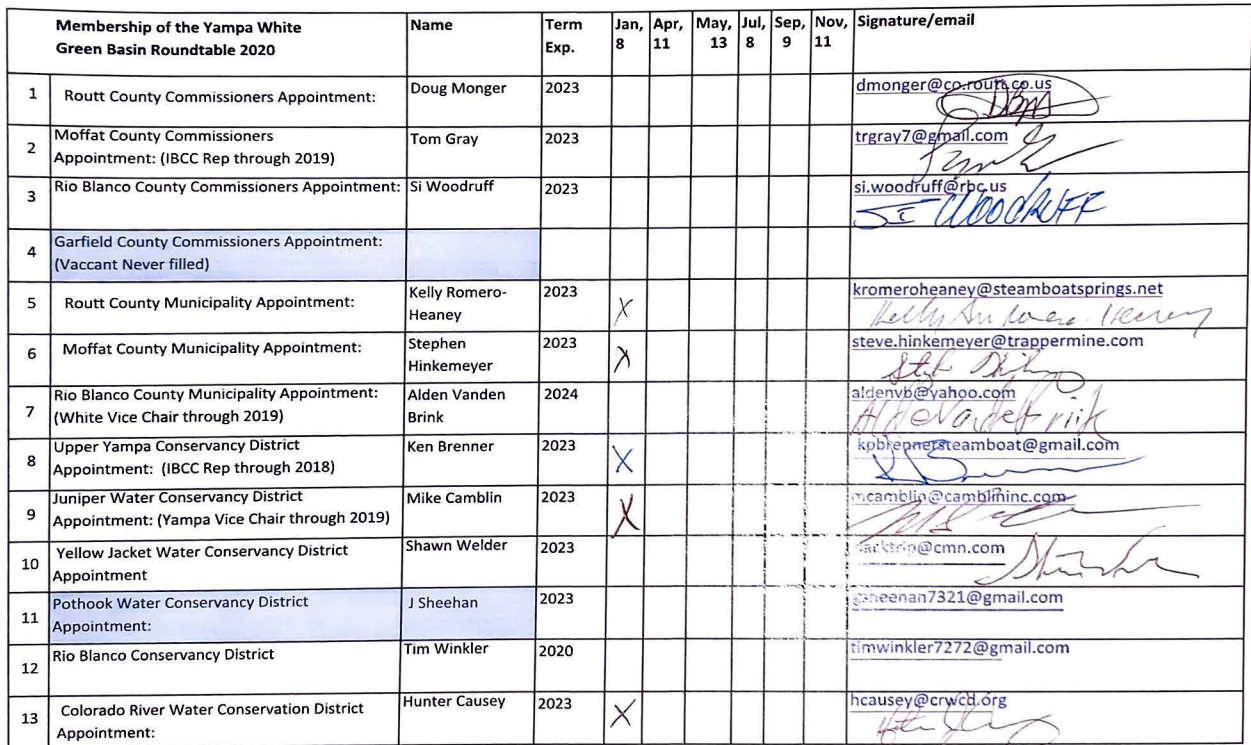 Membership of the Yampa White Green Basin Roundtable 2020 Name Term Exp. Jan, 8 Apr, 11 May, 13 Jul, 8 Sep, 9 Nov, 11 Signature/email
1 Routt County Commissioners Appointment: Doug Monger 2023 dmonger@co.routt.co.us
2 Moffat County Commissioners Appointment: (IBCC Rep through 2019) Tom Gray 2023 trgray7@gmail.com
3 Rio Blanco County Commissioners Appointment: Si Woodruff 2023 si.woodruff@rbc.us
SI WOODRUFF
4 Garfield County Commissioners Appointment: (Vaccant Never filled)
5 Routt County Municipality Appointment: Kelly Romero-Heaney 2023 X kromeroheaney@steamboatsprings.net
6 Moffat County Municipality Appointment: Stephen Hinkemeyer 2023 X steve.hinkemeyer@trappermine.com
7 Rio Blanco County Municipality Appointment: (White Vice Chair through 2019) Alden Vanden Brink 2024 aldenvb@yahoo.com
8 Upper Yampa Conservancy District Appointment: (IBCC Rep through 2018) Ken Brenner 2023 X kpbrennersteamboat@gmail.com
9 Juniper Water Conservancy District Appointment: (Yampa Vice Chair through 2019) Mike Camblin 2023 X mcamblin@camblininc.com
10 Yellow Jacket Water Conservancy District Appointment Shawn Welder 2023
11 Pothook Water Conservancy District Appointment: J Sheehan 2023
12 Rio Blanco Conservancy District Tim Winkler 2020 timwinkler7272@gmail.com
13 Colorado River Water Conservation District Appointment: Hunter Causey 2023 X hcausey@crwcd.org